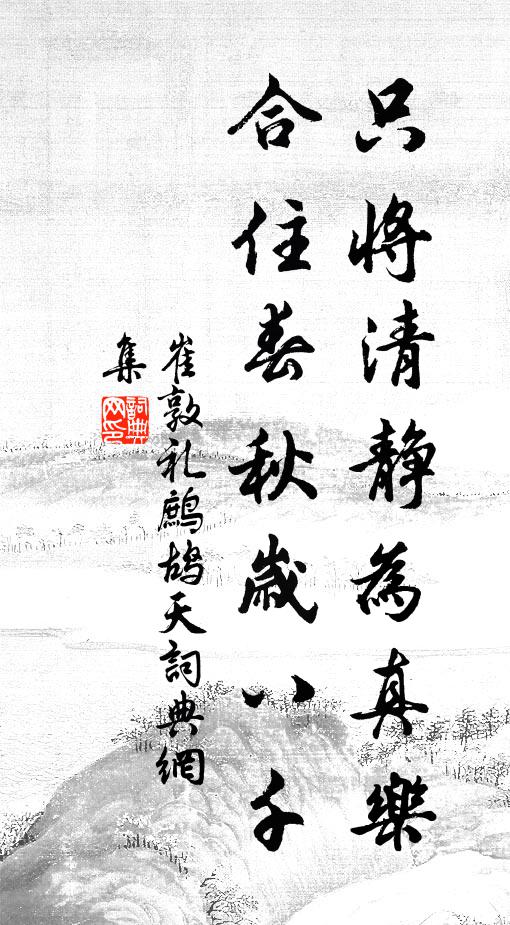 只將清静為真樂
合住春秋歲八千
崔敦礼鷓鴣天詞典網
集
詞典網印